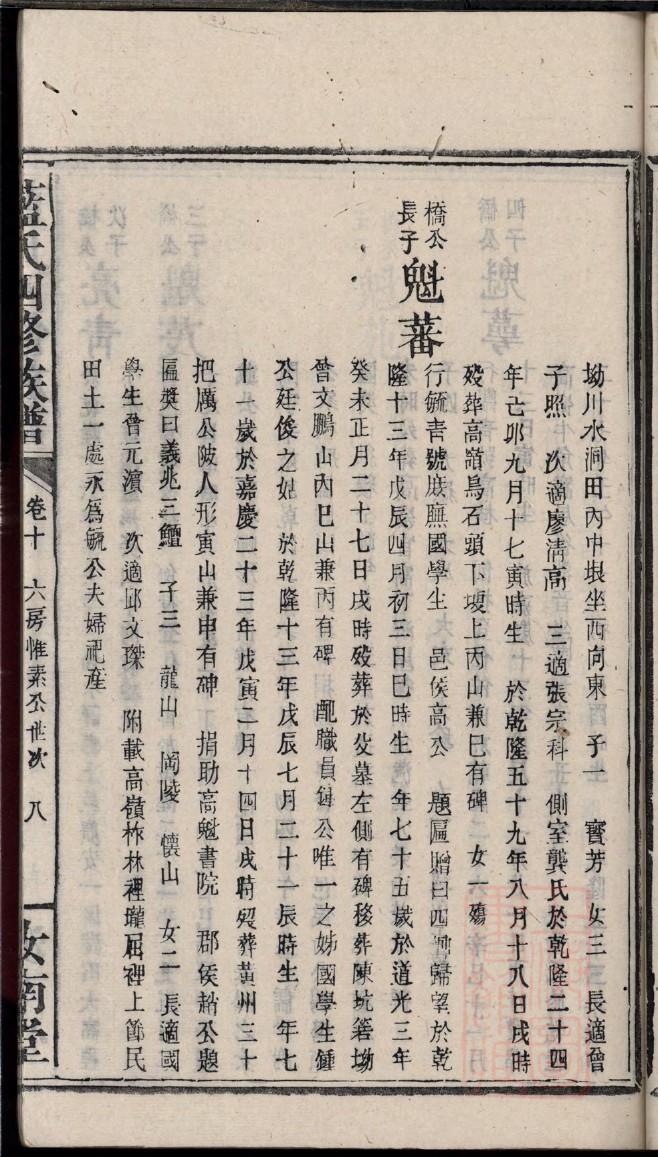 坳川水洞田內中垠坐西向東 子一 寳芳 女三 長適曾
子照 次適廖清高 三適張宗科 側室龔氏於乾隆二十四
年己卯九月十七寅時生 於乾隆五十九年八月十八日戌時
殁葬高嶺鳥石頭下墩上丙山兼巳有碑 二女一殤
橋公長子 魁蕃
行毓青號庶蕪國學生 邑侯高公 題匾贈曰四鄉歸望於乾
隆十三年戊辰四月初三日巳時生 年七十五歲於道光三年
癸未正月二十七日戌時殁葬於父墓左側有碑移葬陳坑窰坳
曾文鵬山內巳山兼丙有碑 配職員鍾公唯一之姊國學生鍾
公廷俊之姑 於乾隆十三年戊辰七月二十一辰時生 年七
十一歲於嘉慶二十三年戊寅二月十四日戌時殁葬黃州三十
把厲公陂人形寅山兼申有碑 捐助高魁書院 郡侯趙公題
匾獎曰義兆三鱣 子三 龍山 岡陵 懷山 女二 長適國
學生曾元濱 次適邱文琛 附載高嶺柞林裡瓏屈裡上節民
田土一處永爲毓公夫婦祀產
藍氏四修族譜 卷十 六房惟素公世次 八 汝南堂